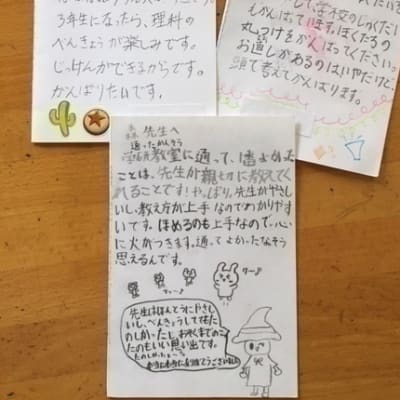 3年生になったら、理科の
べんきょうが楽しみです。
じっけんができるからです。
がんばりたいです。
学校のしゅくだい
しがんばっています。ぼくたちの
丸つけをがんばってください。
お直しがあるのはいやだけど、
頭で考えてがんばります。
森先生へ
通ったかんそう
学研教室に通って、1番よかった
ことは、先生が親切に教えてく
れることです!やっぱり、先生がやさし
いし、教え方が上手なのでわかりやす
いです。ほめるのも上手なので、心
に火がつきます。通ってよかったなそう
思えるんです。
先生はほんとうにやさし
いし、べんきょうしてても
たのしかったし、
たのもいい思い出です。
たのしかったよ〜